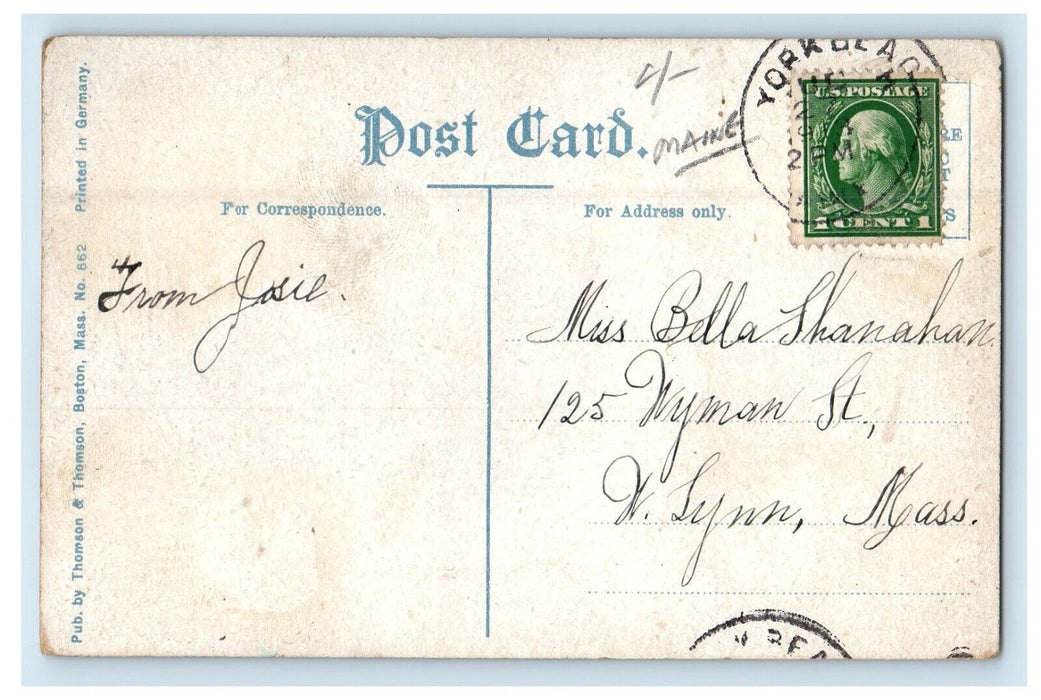 Post Card.
4/-
MAINE
YORK BEAC
2 PM
U.S. POSTAGE
1 CENT 1
For Correspondence.
For Address only.
From Josie.
Miss Bella Shanahan
125 Wyman St.,
W. Lynn, Mass.
Pub. by Thomson & Thomson, Boston, Mass. No. 662 Printed in Germany.
K BEA